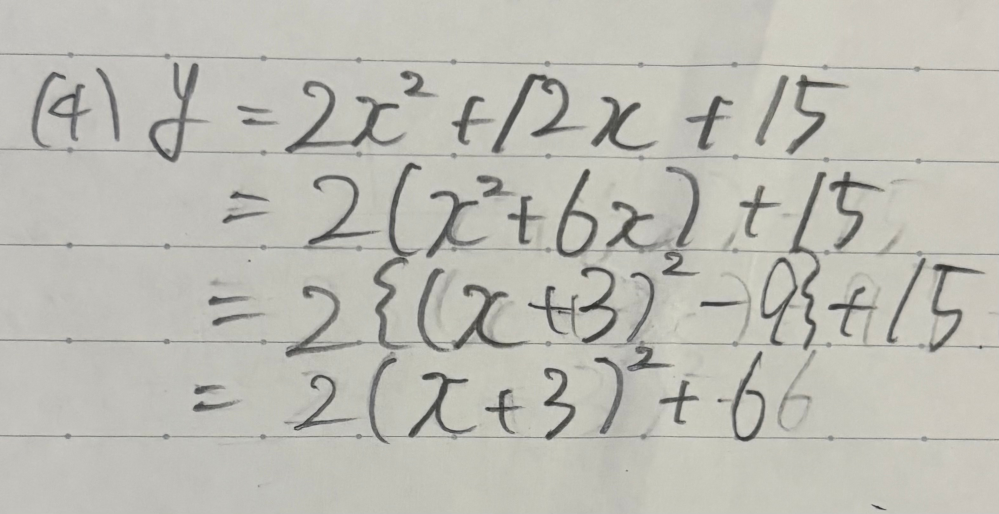 (4) y = 2x² + 12x + 15
= 2(x² + 6x) + 15
= 2{(x+3)² - 9} + 15
= 2(x+3)² + 6